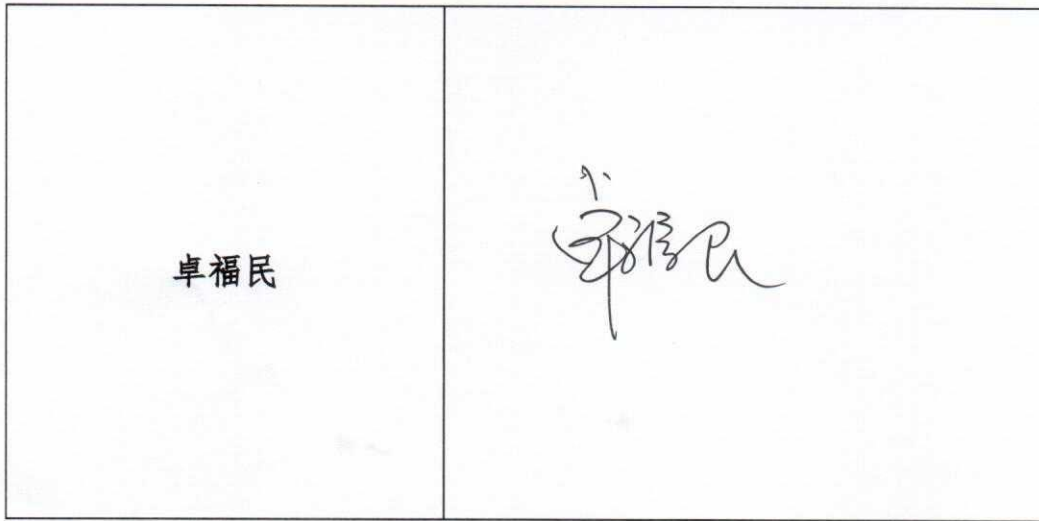 卓福民
卓福民